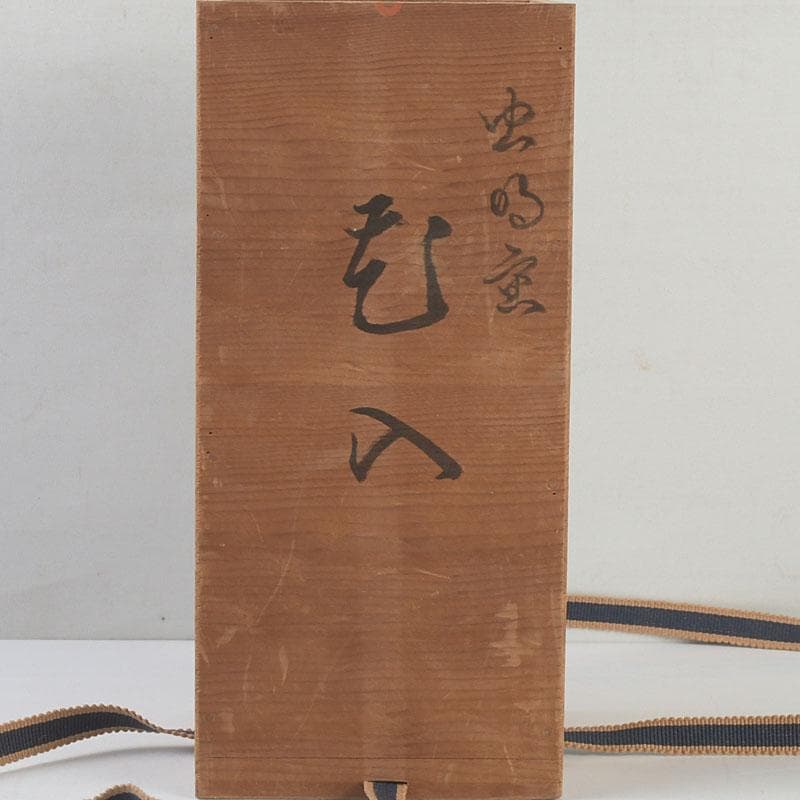 虫明窯
花入